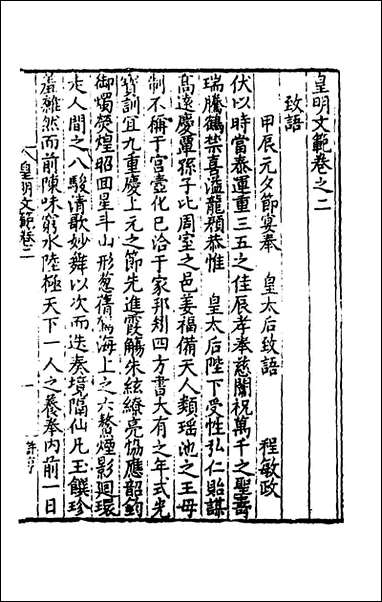 皇明文範卷之二
致語
甲辰元夕節宴奉 皇太后致語 程敏政
伏以時當泰運重三五之佳辰孝奉慈闈祝萬千之聖壽
瑞騰鶴禁喜溢龍顏恭惟 皇太后陛下受性弘仁貽謀
高遠慶覃孫子比周室之邑姜福備天人類瑤池之王母
制不稱于宮壼化已洽于家邦矧四方書大有之年式光
寶訓宜九重慶上元之節先進霞觴朱絃繚亮協應韶鈞
御燭熒煌昭回星斗山形葱蒨駕海上之六鰲煙影迴環
走人間之八駿清歌妙舞以次而迭奏境隔仙凡玉饌珍
羞雜然而前陳味窮水陸極天下一人之養奉內前一日
皇明文範卷二
一